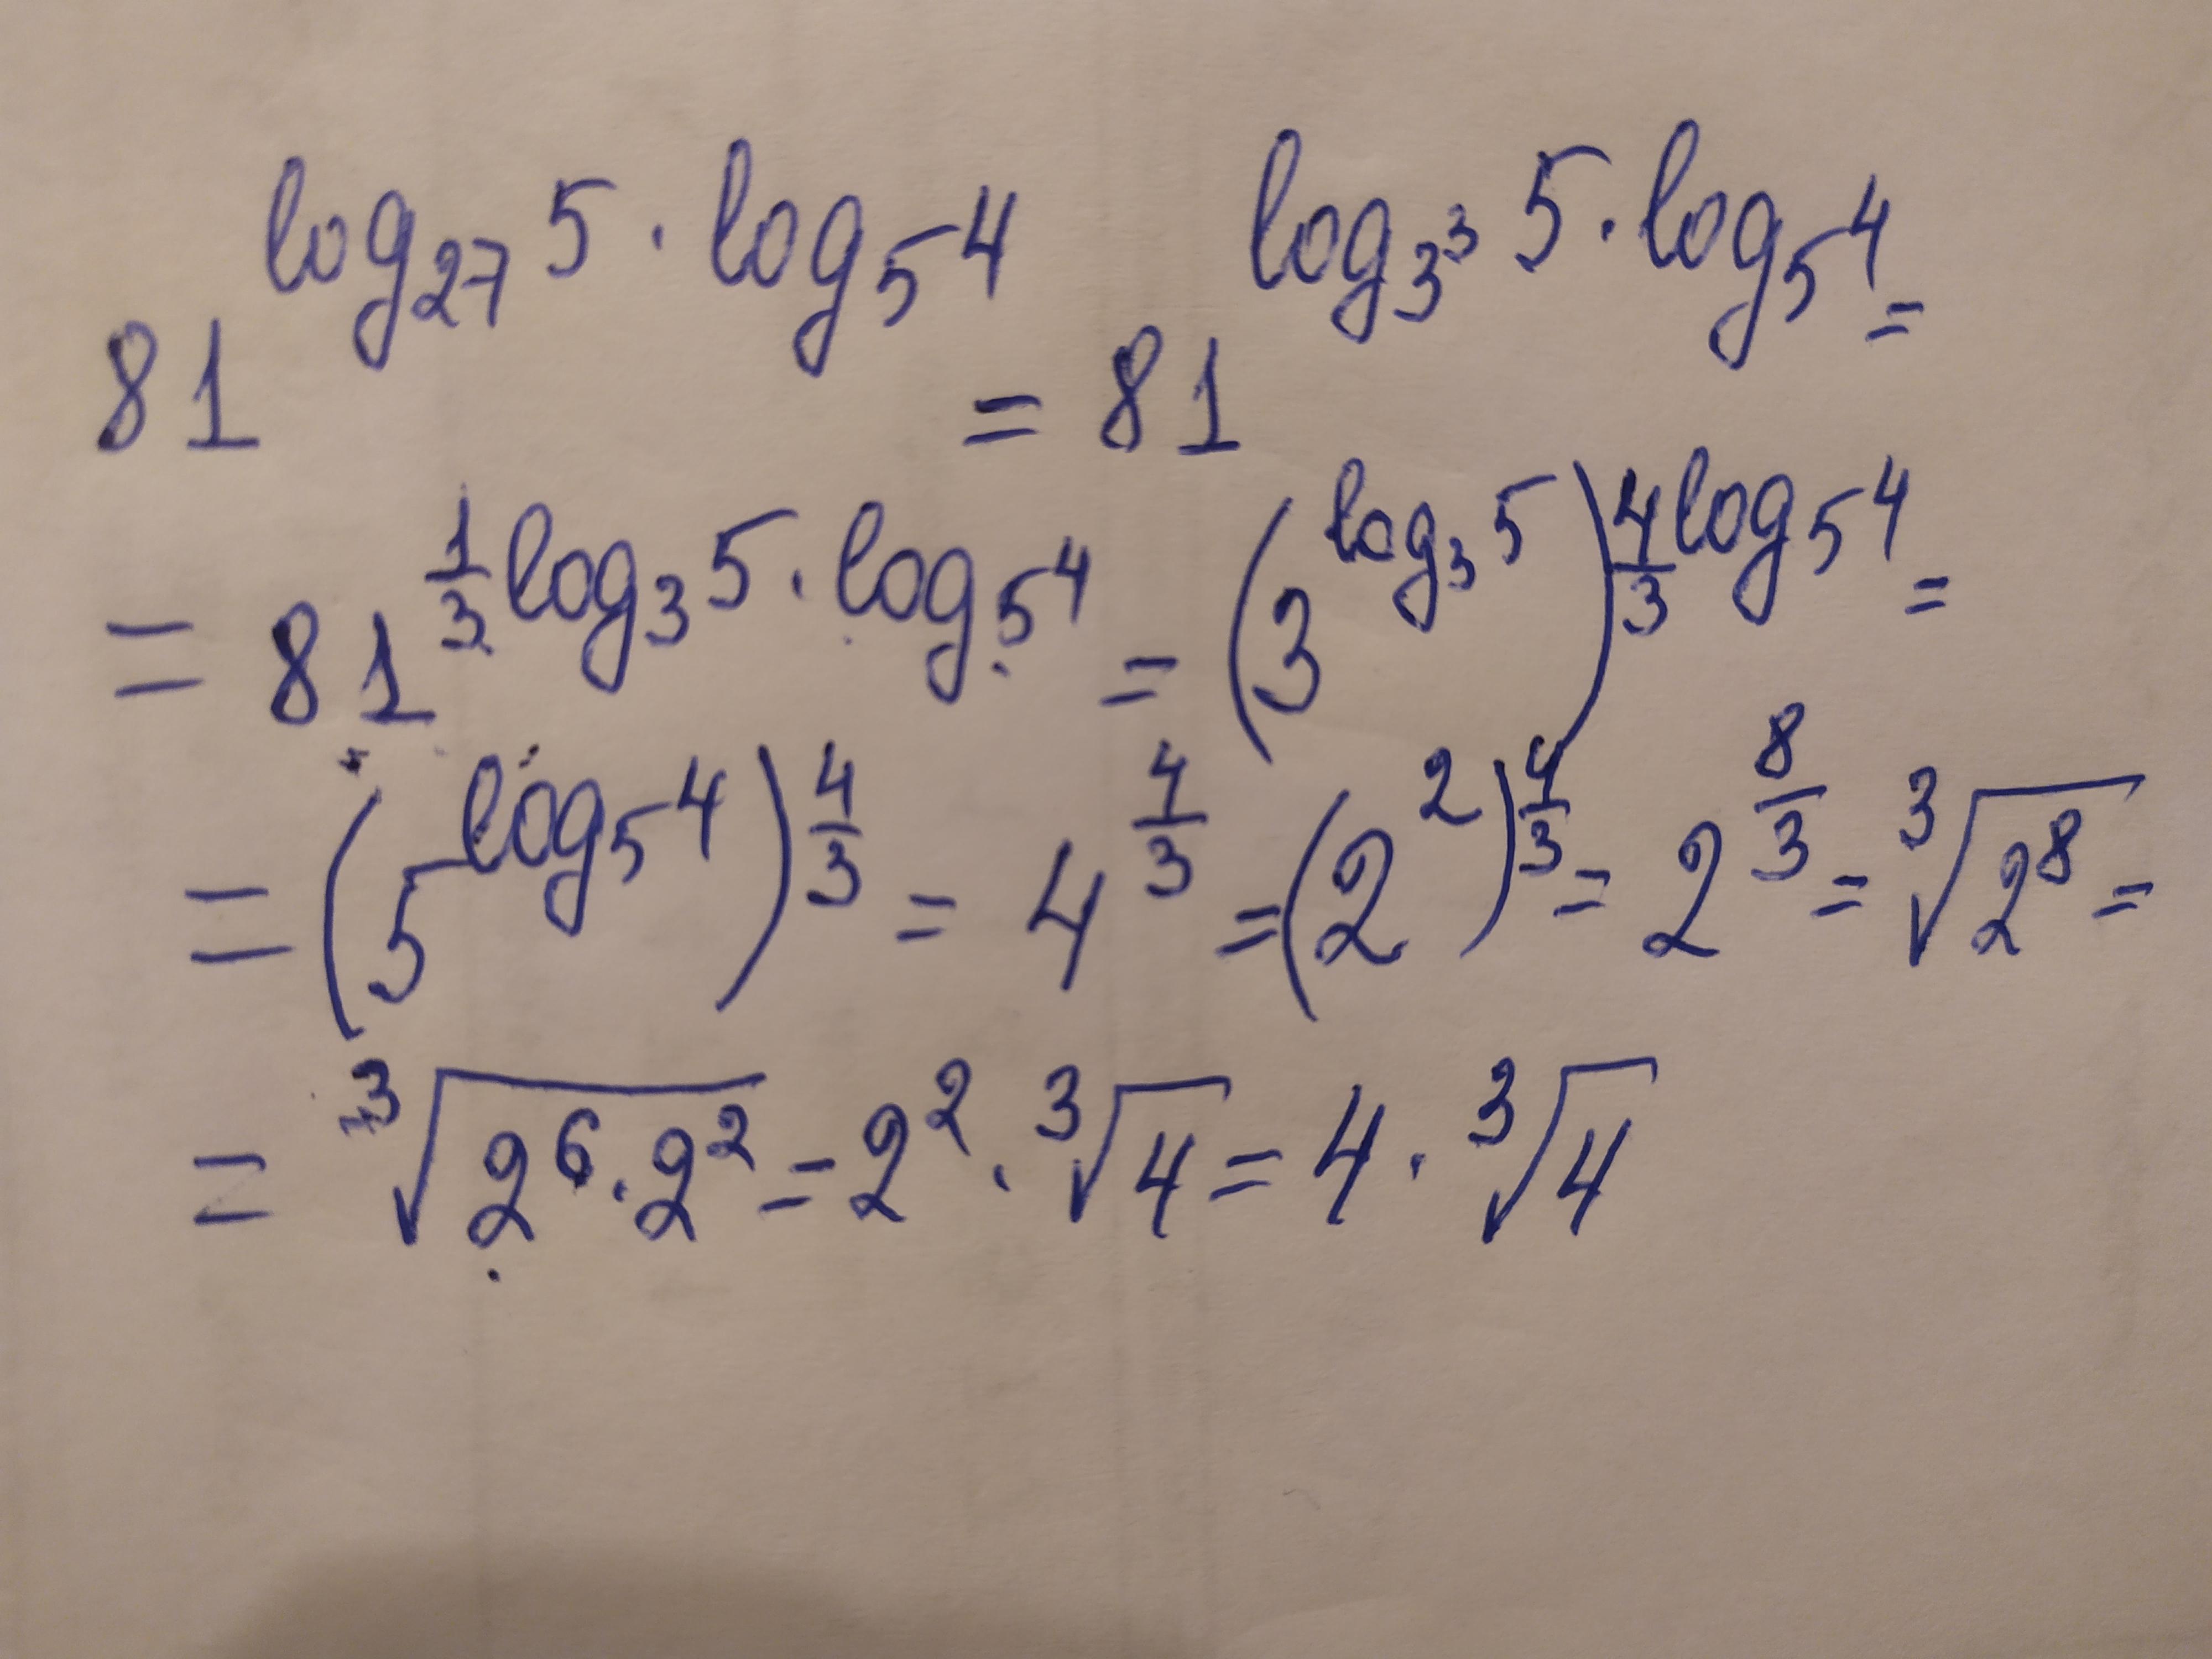 81^{log_{27} 5 · log_5 4} = 81^{log_{3^3} 5 · log_5 4} =
= 81^{\frac{1}{3} log_3 5 · log_5 4} = (3^{log_3 5})^{\frac{4}{3} log_5 4} =
= (5^{log_5 4})^{\frac{4}{3}} = 4^{\frac{4}{3}} = (2^2)^{\frac{4}{3}} = 2^{\frac{8}{3}} = \sqrt[3]{2^8} =
= \sqrt[3]{2^6 · 2^2} = 2^2 · \sqrt[3]{4} = 4 · \sqrt[3]{4}